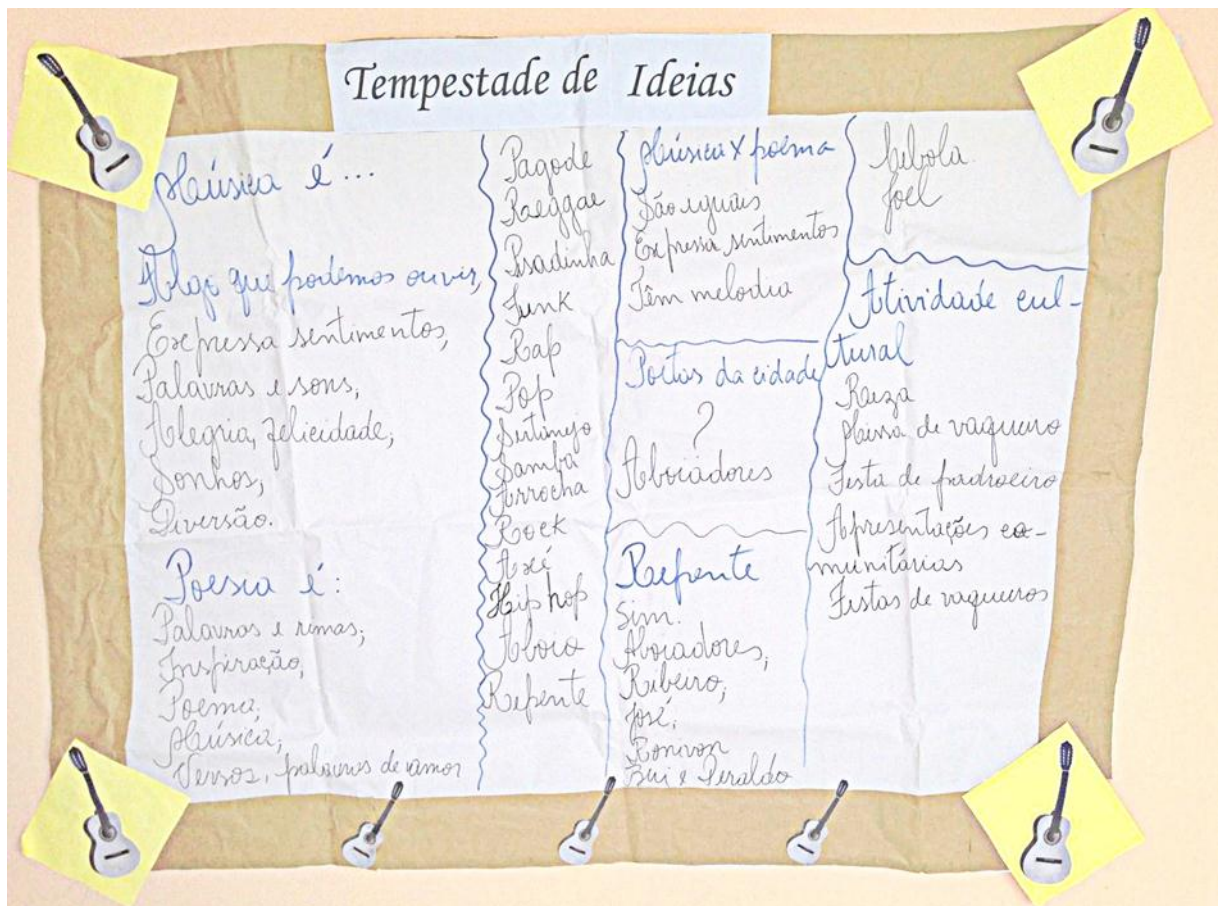 Tempestade de Ideias
Música é...
Algo que podemos ouvir,
Expressa sentimentos,
Palavras e sons,
Alegria, felicidade,
Sonhos,
Diversão.
Poesia é:
Palavras e rimas,
Inspiração,
Poema,
Música,
Versos, palavras de amor
Pagode
Raeggae
Pisadinha
Funk
Rap
Pop
Sertanejo
Samba
Arrocha
Rock
Axé
Hip hop
Aboio
Repente
Música X poema
São iguais
Expressa sentimentos
Têm melodia
Poetas da cidade
?
Aboiadores
Repente
Sim.
Aboiadores,
Ribeiro,
José,
Ronivon
e Geraldo
Joel
Atividade cul-
tural
Missa de vaqueiro
Festa de padroeiro
Apresentações co-
munitárias
Festas de vaqueiros